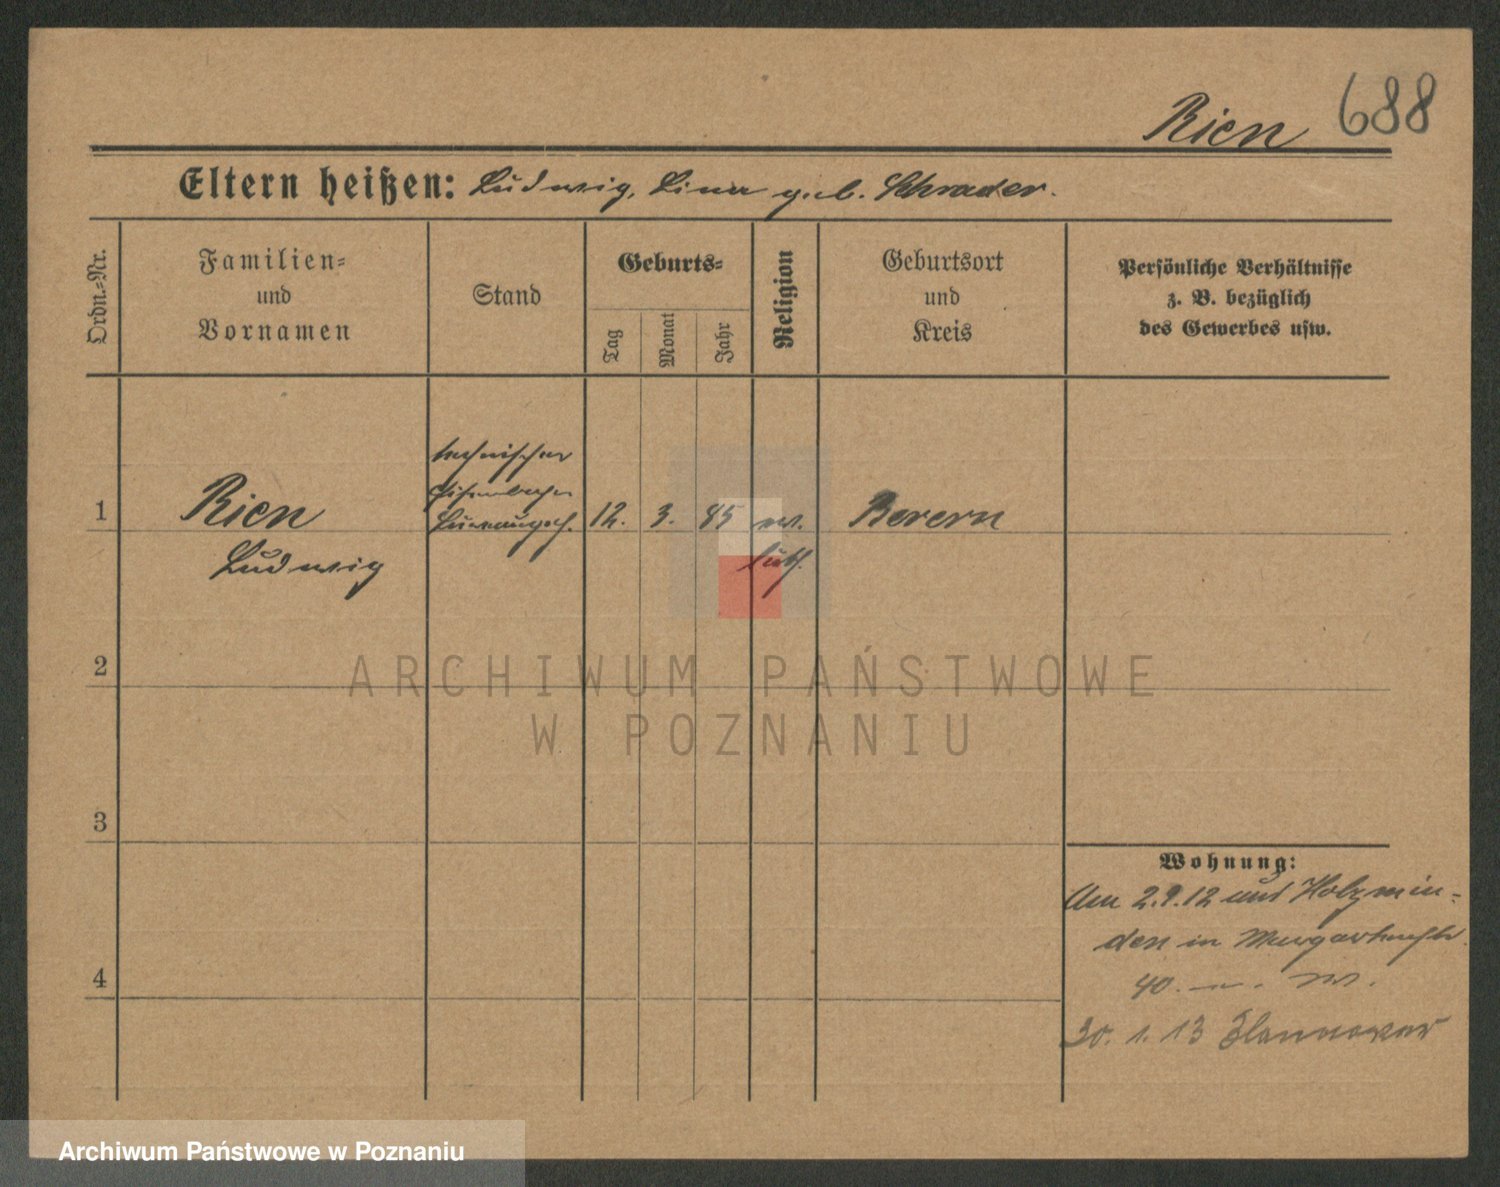 Rien 688
Eltern heißen: Ludwig, Lina geb. Schrader.
Ordn.-Nr.
Familien-
und
Vornamen
Stand
Geburts-
Tag
Monat
Jahr
Religion
Geburtsort
und
Kreis
Persönliche Verhältnisse
z. B. bezüglich
des Gewerbes usw.
1
Rien
Ludwig
technischer
12. 3. 85
ev.
luth.
Bevern
2
3
4
Wohnung:
Am 2.9.12 aus Holzmin-
den in
40.
30. 1. 13 Hannover
ARCHIWUM PAŃSTWOWE
W POZNANIU
Archiwum Państwowe w Poznaniu